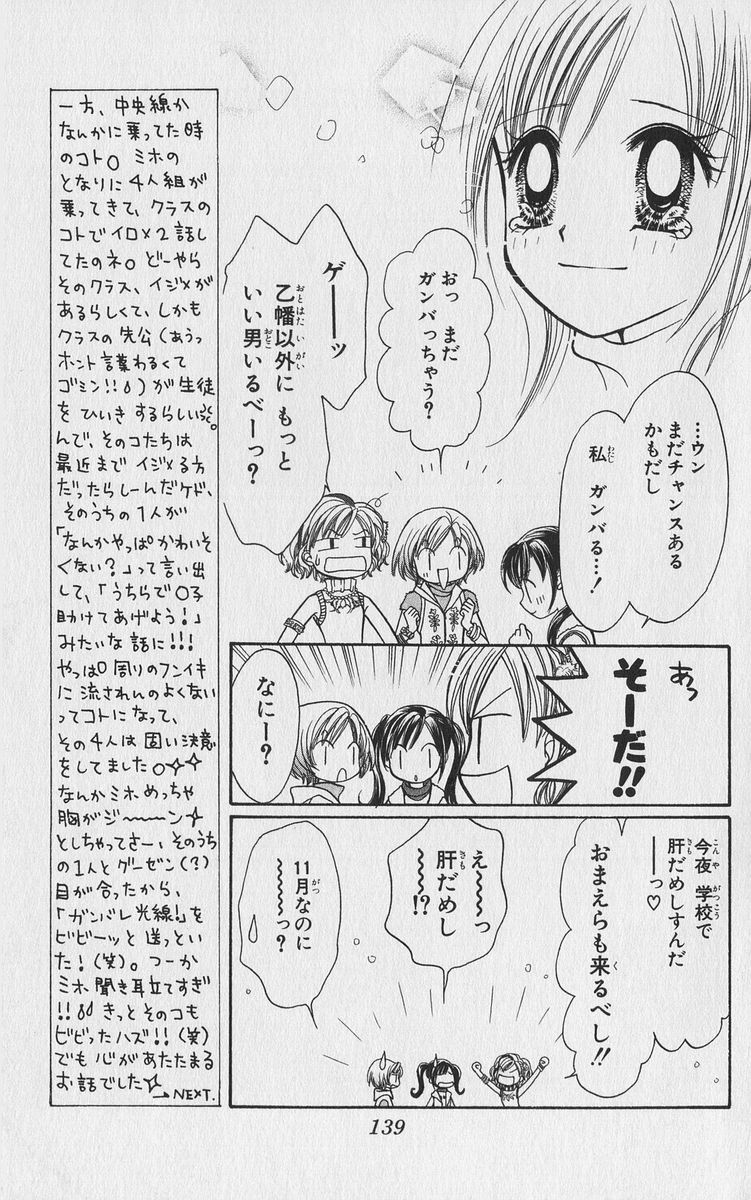 …ウン
まだチャンスある
かもだし
私 ガンバる…!
おっ まだ
ガンバっちゃう?
ゲーッ
乙幡以外に もっと
いい男いるべーっ?
あっ
そーだ!!
なにー?
今夜 学校で
肝だめしすんだ
――っ♡
おまえらも来るべし!!
え〜〜〜っ
肝だめし
〜〜〜!?
11月なのに
〜〜〜っ?
一方、中央線か
なんかに乗ってた時
のコト。ミホの
となりに4人組が
乗ってきて、クラスの
コトでイロ×2話し
てたのネ。どーやら
そのクラス、イジメが
あるらしくて、しかも
クラスの先公(あうっ
ホント言葉わるくて
ゴミン!!)が生徒
を ひいき するらしいの。
んで、そのコたちは
最近まで イジメる方
だったらしーんだケド、
そのうちの1人が
「なんかやっぱかわいそ
くない?」って言い出
して、「うちらで○子
助けてあげよう!」
みたいな話に!!!
やっぱ周りのフンイキ
に 流されんのよくない
ってコトになって、
その4人は固い決意
をしてました。✧✧
なんかミホめっちゃ
胸がジ〜〜〜ン✧
としちゃってさー、そのうち
の1人とグーゼン(?)
目が合ったから、
「ガンバレ光線!」を
ビビーッと 送っとい
た!(笑)。つーか
ミホ聞き耳立てすぎ
!! きっとそのコも
ビビったハズ!!(笑)
でも 心があたたまる
お話でした✧
→NEXT.
139